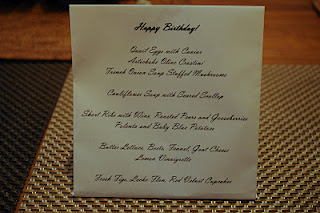 Happy Birthday!
Quail Eggs with Caviar
Artichoke Olive Crostini
French Onion Soup Stuffed Mushrooms
Cauliflower Soup with Seared Scallop
Short Ribs with Wine, Roasted Pears and Gooseberries
Polenta and Baby Blue Potatoes
Butter Lettuce, Beets, Fennel, Goat Cheese
Lemon Vinaigrette
Fresh Figs, Leche Flan, Red Velvet Cupcakes